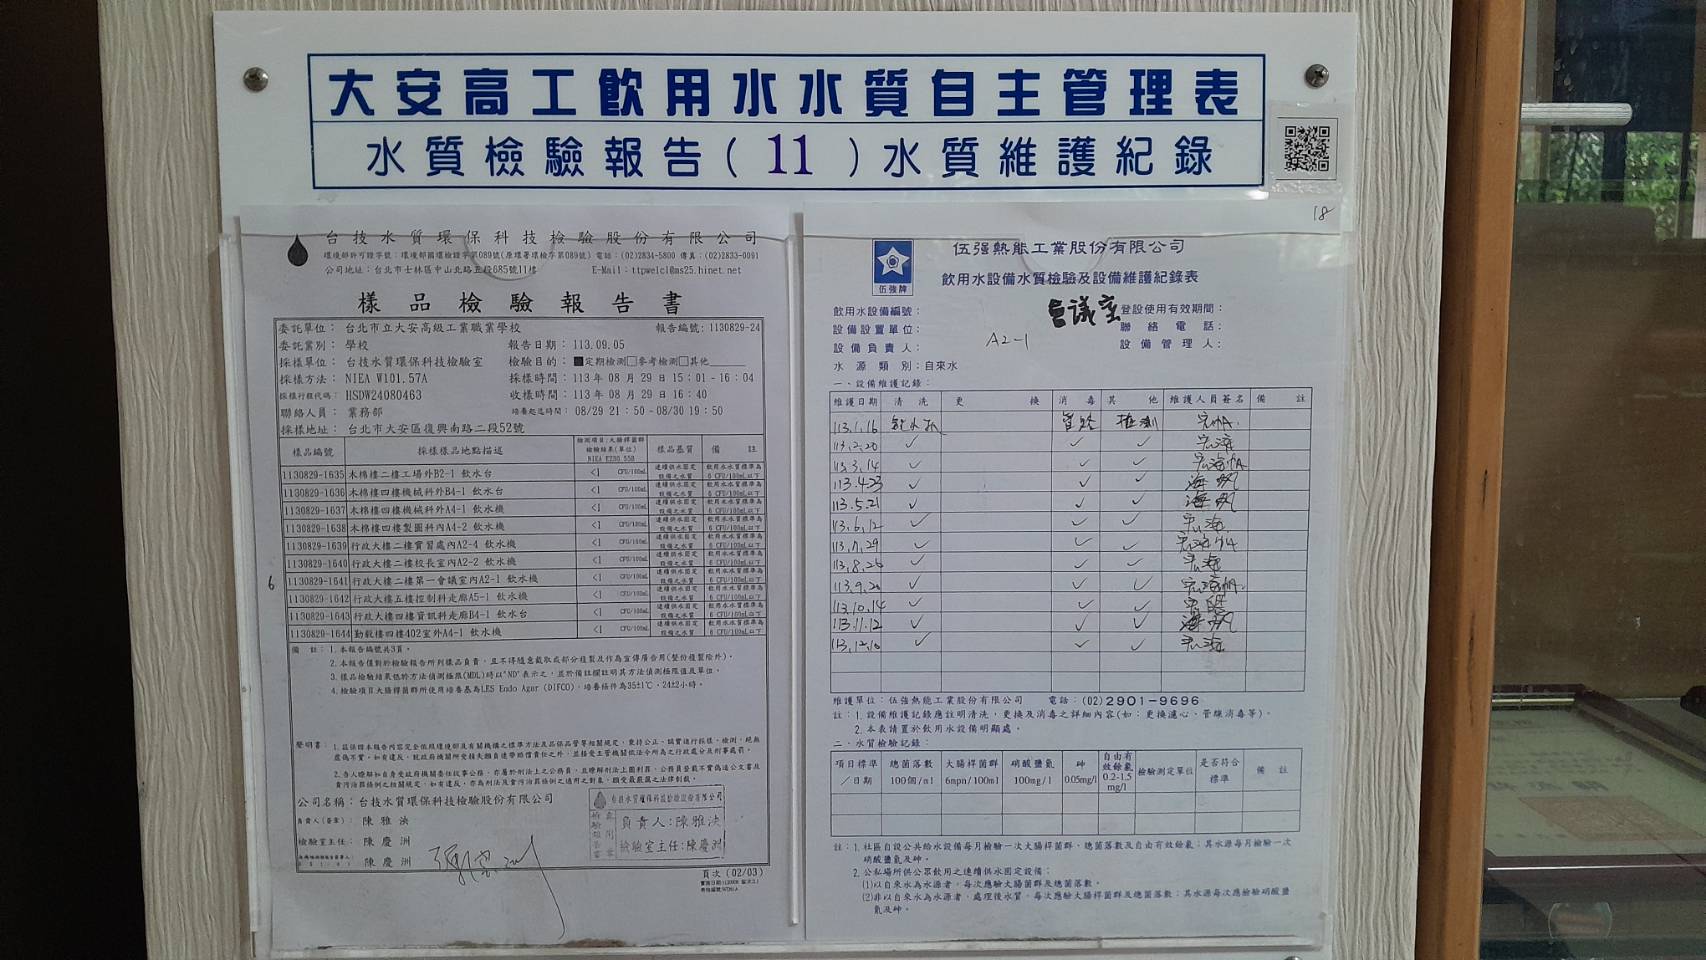 大安高工飲用水水質自主管理表
水質檢驗報告( 11 )水質維護紀錄
18
台技水質環保科技檢驗股份有限公司
環境部許可證字號:環境部國環檢證字第089號(原環署環檢字第089號) 電話:(02)2834-5800 傳真:(02)2833-0091
公司地址:台北市士林區中山北路五段685號11樓 E-Mail:ttpwelcl@ms25.hinet.net
樣品檢驗報告書
委託單位: 台北市立大安高級工業職業學校 報告編號: 1130829-24
委託業別: 學校 報告日期: 113.09.05
採樣單位: 台技水質環保科技檢驗室 檢驗目的: ■定期檢測□參考檢測□其他
採樣方法: NIEA W101.57A 採樣時間: 113 年 08 月 29 日 15:01-16:04
採樣行程代碼: HSDW24080463 收樣時間: 113 年 08 月 29 日 16:40
聯絡人員: 業務部 培養起迄時間: 08/29 21:50-08/30 19:50
採樣地址: 台北市大安區復興南路二段52號
樣品編號 採樣樣品地點描述 檢測項目:大腸桿菌群 檢驗結果(單位) NIEA E230.55B 樣品基質 備 註
1130829-1635 木棉樓二樓工場外B2-1 飲水台 <1 CFU/100mL 連續供水固定設備之水質 飲用水水質標準為6 CFU/100mL以下
1130829-1636 木棉樓四樓機械科外B4-1 飲水台 <1 CFU/100mL 連續供水固定設備之水質 飲用水水質標準為6 CFU/100mL以下
1130829-1637 木棉樓四樓機械科外A4-1 飲水機 <1 CFU/100mL 連續供水固定設備之水質 飲用水水質標準為6 CFU/100mL以下
1130829-1638 木棉樓四樓製圖科內A4-2 飲水機 <1 CFU/100mL 連續供水固定設備之水質 飲用水水質標準為6 CFU/100mL以下
1130829-1639 行政大樓二樓實習處內A2-4 飲水機 <1 CFU/100mL 連續供水固定設備之水質 飲用水水質標準為6 CFU/100mL以下
1130829-1640 行政大樓二樓校長室內A2-2 飲水機 <1 CFU/100mL 連續供水固定設備之水質 飲用水水質標準為6 CFU/100mL以下
6 1130829-1641 行政大樓二樓第一會議室內A2-1 飲水機 <1 CFU/100mL 連續供水固定設備之水質 飲用水水質標準為6 CFU/100mL以下
1130829-1642 行政大樓五樓控制科走廊A5-1 飲水機 <1 CFU/100mL 連續供水固定設備之水質 飲用水水質標準為6 CFU/100mL以下
1130829-1643 行政大樓四樓資訊科走廊B4-1 飲水台 <1 CFU/100mL 連續供水固定設備之水質 飲用水水質標準為6 CFU/100mL以下
1130829-1644 勤毅樓四樓402室外A4-1 飲水機 <1 CFU/100mL 連續供水固定設備之水質 飲用水水質標準為6 CFU/100mL以下
備 註: 1.本報告編號共3頁。
2.本報告僅對於檢驗報告所列樣品負責,且不得隨意截取或部分複製及作為宣傳廣告用(整份複製除外)。
3.樣品檢驗結果低於方法偵測極限(MDL)時以"ND"表示之,並於備註欄註明其方法偵測極限值及單位。
4.檢驗項目大腸桿菌群所使用培養基為LES Endo Agar (DIFCO),培養條件為35±1℃,24±2小時。
聲明書: 1.茲保證本報告內容完全依照環境部及有關機構之標準方法及品保品管等相關規定,秉持公正、誠實進行採樣、檢測。絕無
虛偽不實,如有違反,就政府機關所受損失願負連帶賠償責任之外,並接受主管機關依法令所為之行政處分及刑事處罰。
2.吾人瞭解如自身受政府機關委任從事公務,亦屬於刑法上之公務員,並瞭解刑法上圖利罪、公務員登載不實偽造公文書及
貪污治罪條例之相關規定,如有違反,亦為刑法及貪污治罪條例之適用之對象,願受最嚴厲之法律制裁。
公司名稱:台技水質環保科技檢驗股份有限公司
負責人(簽章): 陳雅泱
檢驗室主任: 陳慶洲
陳慶洲
台技水質環保科技檢驗股份有限公司
負責人:陳雅泱
檢驗室主任:陳慶洲
頁次(02/03)
伍強牌
伍強熱能工業股份有限公司
飲用水設備水質檢驗及設備維護紀錄表
飲用水設備編號: 會議室 登設使用有效期間:
設備設置單位: A2-1 聯絡電話:
設備負責人: 設備管理人:
水源類別:自來水
一、設備維護記錄:
維護日期 清洗 更換 消毒 其他 維護人員簽名 備註
113.1.16 管路
113.2.20 ✓ ✓ ✓
113.3.14 ✓ ✓ ✓
113.4.23 ✓ ✓ ✓
113.5.21 ✓ ✓ ✓
113.6.12 ✓ ✓ ✓
113.7.29 ✓ ✓ ✓
113.8.26 ✓ ✓ ✓
113.9.20 ✓ ✓ ✓
113.10.14 ✓ ✓ ✓
113.11.12 ✓ ✓ ✓
113.12.10 ✓ ✓ ✓
維護單位:伍強熱能工業股份有限公司 電話:(02)2901-9696
註:1.設備維護記錄應註明清洗,更換及消毒之詳細內容(如:更換濾心、管線消毒等)。
2.本表請置於飲用水設備明顯處。
二、水質檢驗記錄:
項目標準/日期 總菌落數 100個/ml 大腸桿菌群 6mpn/100ml 硝酸鹽氮 100mg/l 砷 0.05mg/l 自由有效餘氯 0.2-1.5 mg/l 檢驗測定單位 是否符合標準 備註
註:1.社區自設公共給水設備每月檢驗一次大腸桿菌群、總菌落數及自由有效餘氯;其水源每月檢驗一次
硝酸鹽氮及砷。
2.公私場所供公眾飲用之連續供水固定設備:
(1)以自來水為水源者,每次應驗大腸桿菌群及總菌落數。
(2)非以自來水為水源者,處理後水質,每次應驗大腸桿菌群及總菌落數;其水源每次應檢驗硝酸鹽
氮及砷。